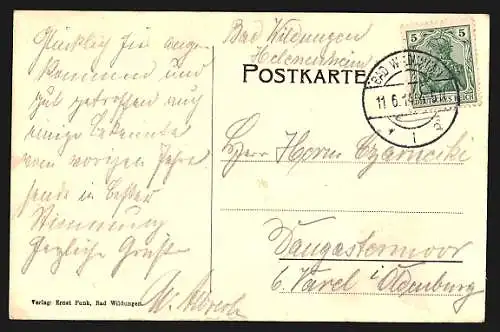 Glücklich hier ange-
kommen und
gut getroffen auch
einige Bekannte
vom vorigen Jahre
sende in bester
Stimmung
Herzliche Grüße
Bad Wildungen
Helenenheim
POSTKARTE
5 5
DEUTSCHES REICH
BAD WILDUNGEN
11.6.19
Herrn Horm.
Dangastermoor
b. Varel i. Oldenburg
Verlag: Ernst Funk, Bad Wildungen.